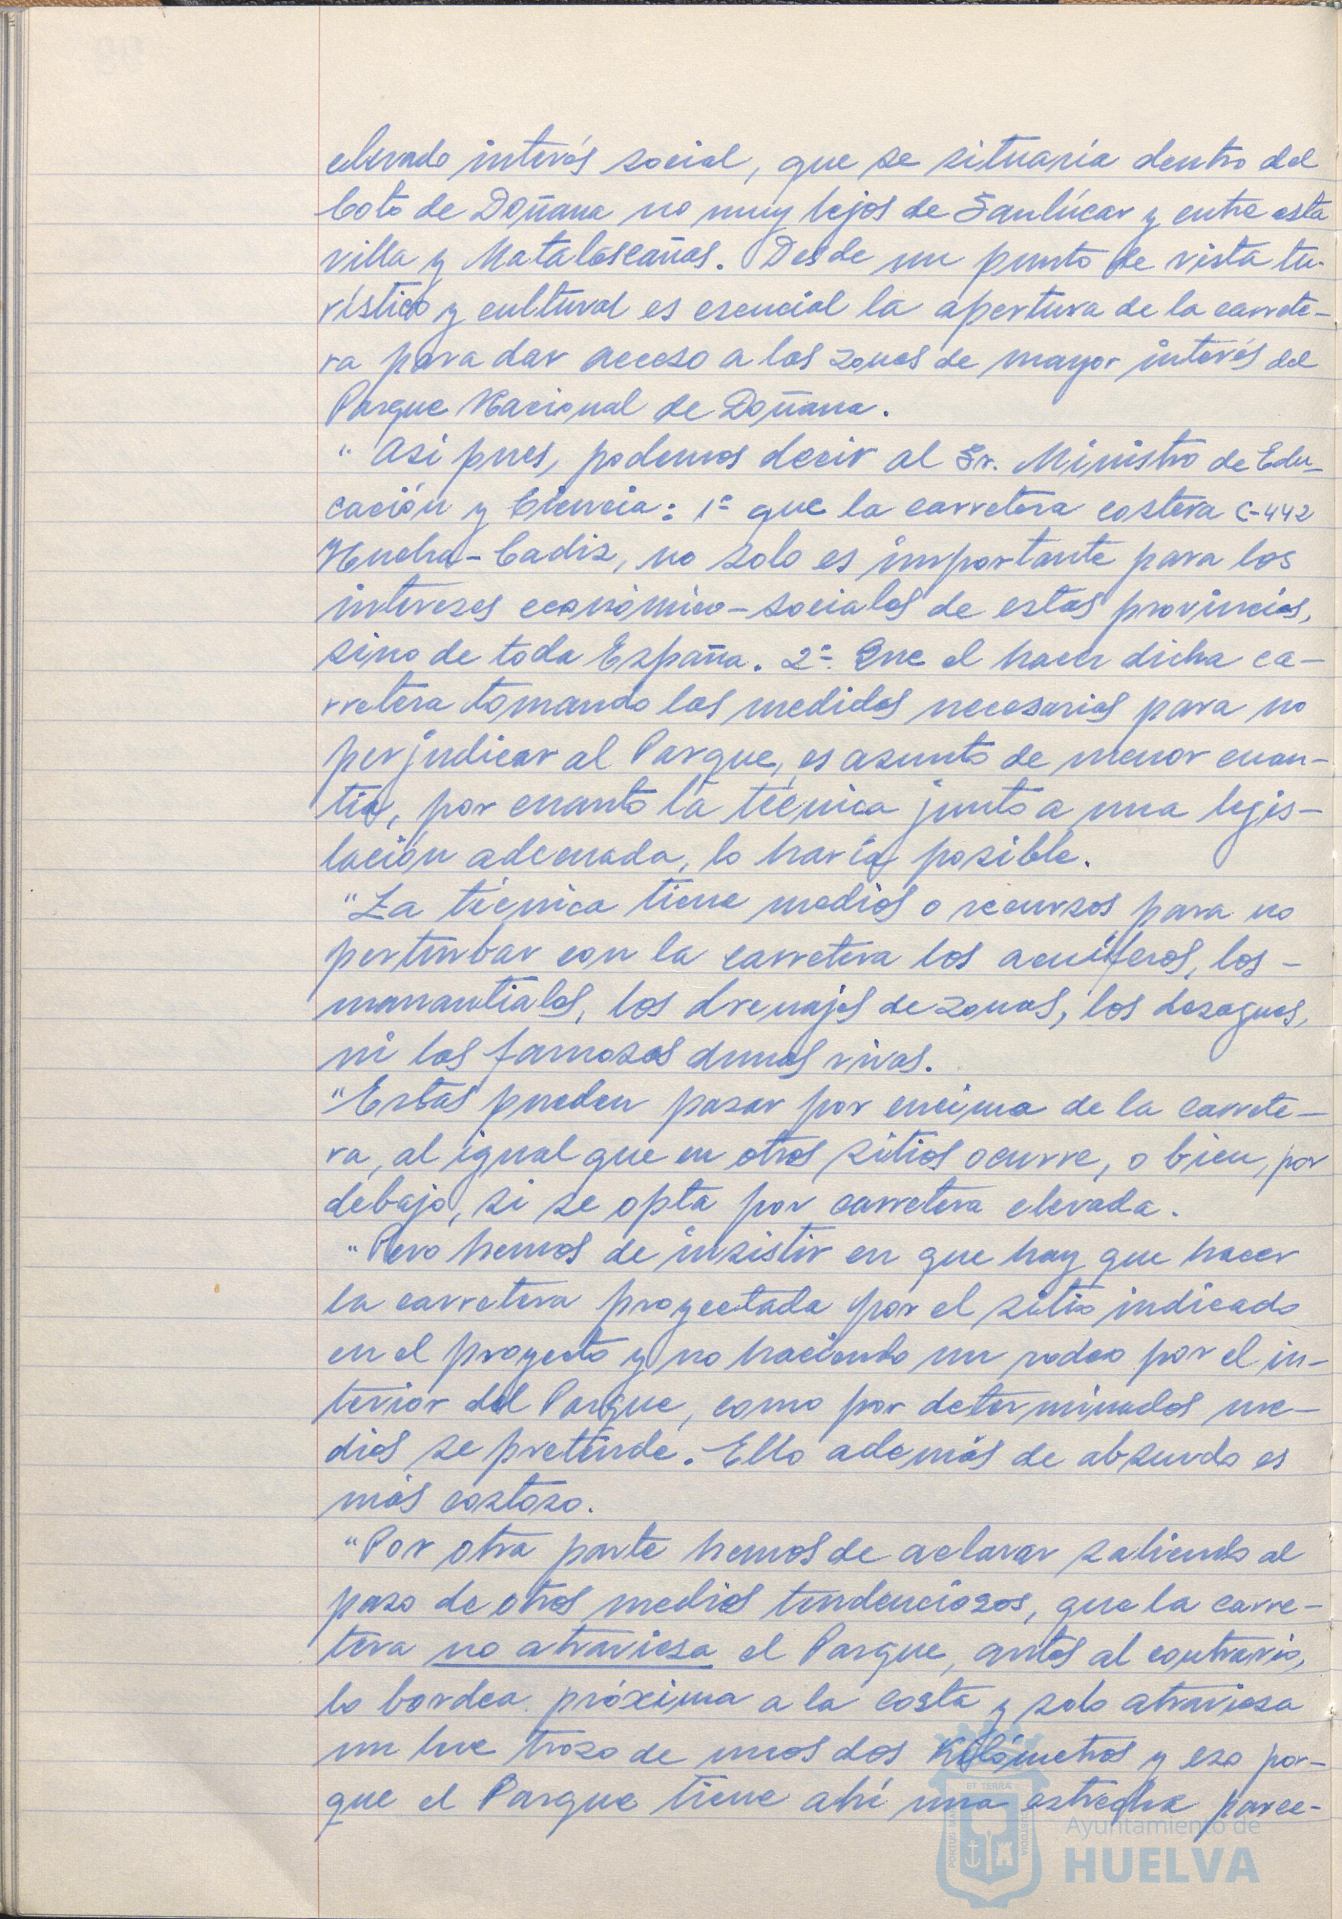 elevado interés social, que se situaría dentro del
Coto de Doñana no muy lejos de Sanlúcar y entre esta
villa y Matalascañas. Desde un punto de vista tu-
rístico y cultural es esencial la apertura de la carrete-
ra para dar acceso a las zonas de mayor interés del
Parque Nacional de Doñana.
" Asi pues, podemos decir al Sr. Ministro de Edu-
cación y Ciencia: 1º que la carretera costera C-442
Huelva-Cadiz, no solo es importante para los
intereses económico-sociales de estas provincias,
sino de toda España. 2º. Que el hacer dicha ca-
rretera tomando las medidas necesarias para no
perjudicar al Parque, es asunto de menor cuan-
tia, por cuanto la técnica junto a una legis-
lación adecuada, lo haría posible.
"La técnica tiene medios o recursos para no
perturbar con la carretera los acuíferos, los -
manantiales, los drenajes de zonas, los desagues,
ni las famosas dunas vivas.
"Estas pueden pasar por encima de la carrete-
ra, al igual que en otros sitios ocurre, o bien, por
debajo, si se opta por carretera elevada.
"Pero hemos de insistir en que hay que hacer
la carretera proyectada por el sitio indicado
en el proyecto y no haciendo un rodeo por el in-
terior del Parque, como por determinados me-
dios se pretende. Ello además de absurdo es
más costoso.
"Por otra parte hemos de aclarar saliendo al
paso de otros medios tendenciosos, que la carre-
tera no atraviesa el Parque, antes al contrario,
lo bordea próxima a la costa y solo atraviesa
un trozo de unos dos Kilómetros y eso por-
que el Parque tiene ahí una estrecha parce-
ET TERRA
Ayuntamiento de
HUELVA